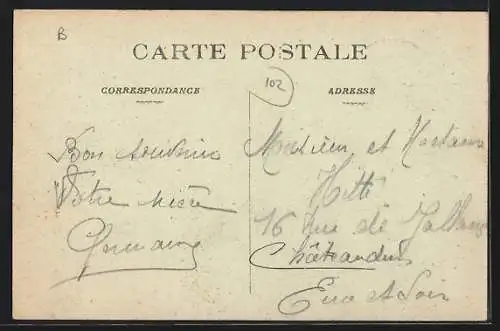 B
CARTE POSTALE
102
CORRESPONDANCE
ADRESSE
Bon souvenir
Votre nièce
Germaine
Monsieur et Madame
Hitté
16 rue de
Châteaudun
Eure et Loir